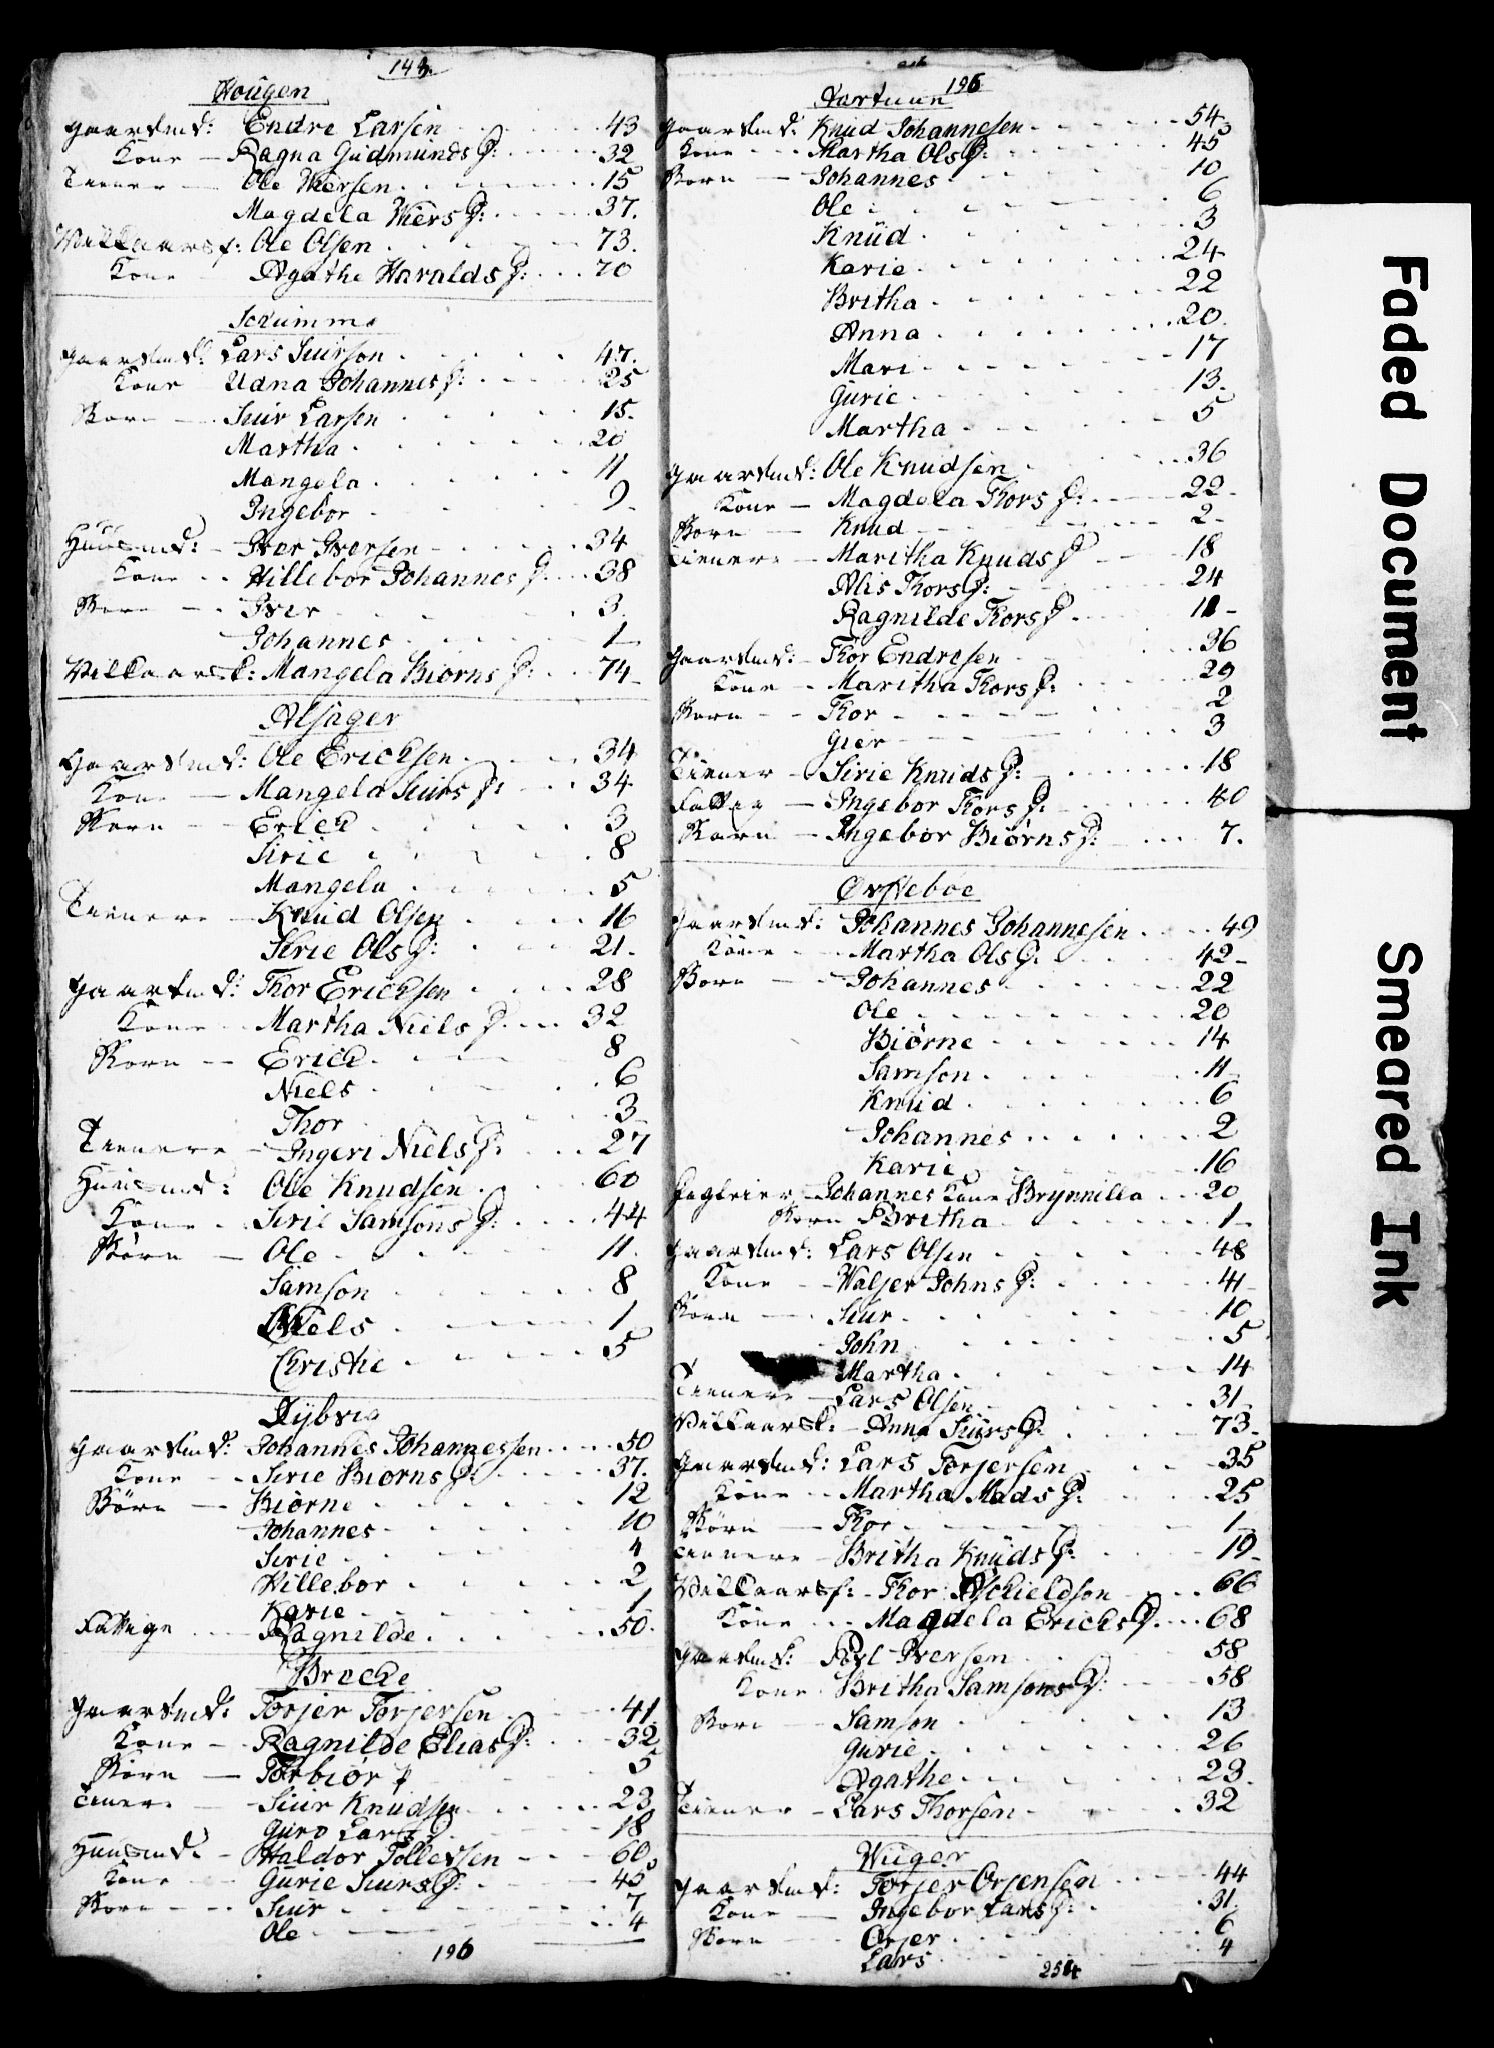 143.
Hougen
Gaardmd: Endre Larsen 43
Kone Ragna Gudmunds D: 32
Tiener Ole Wiersen 15
Magdela Wiers D: 37.
Wilkaarsf: Ole Olsen 73.
Kone Agathe Haralds D: 70
Scrumme
Gaardmd: Lars Siurson 47.
Kone Udna Johannes D: 25
Børn Siur Larsen 15.
Martha 20
Mangela 11
Ingebor 9.
Huusmd: Iver Iversen 34
Kone Hillebor Johannes D. 38
Børn Iver 3.
Johannes 1
Vilkaarsk: Mangela Biorns D: 74
Alsager
Gaardmd: Ole Ericksen 34
Kone Mangela Siurs D: 34
Børn Erick 3
Sirie 8
Mangela 5
Tienere Knud Olsen 16
Sirie Ols D: 21.
Gaardmd: Thor Ericksen 28
Kone Martha Niels D. 32
Børn Erick 8
Niels 6
Thor 3
Tienere Ingeri Niels D: 27
Huusmd: Ole Knudsen 60
Kone Sirie Samsons D: 44
Børn Ole 11.
Samson 8
Niels 1
Christie 5
Dybvig
Gaardmd: Johannes Johannessen 50
Kone Sirie Biorns D: 37.
Børn Biørne 12
Johannes 10
Sirie 4
Hillebor 2
Karie 1
Fattige Ragnilde 50.
Brecke
Gaardmd: Torjer Torjersen 41
Kone Ragnilde Elias D: 32
Børn Torbiør 5
Tienere Siur Knudsen 23
Guro Lars D 18
Huusmd. Haldor Tollersen 60
Kone Gurie Siurs D: 45
Børn Siur 7
Ole 4
196
196
Aartuun
Gaardmd: Knud Johannesen 54
Kone Martha Ols D: 45
Børn Johannes 10
Ole 6
Knud 3
Karie 24
Britha 22
Anna 20.
Mari 17
Gurie 13.
Martha 5
Gaardmd: Ole Knudsen 36
Kone Magdela Thors D: 22
Børn Knud 2
Tienere Maritha Knuds D 18
Alis Thors D: 24
Ragnilde Thors D 11
Gaardmd: Thor Endresen 36
Kone Maritha Thors D: 29
Børn Thor 2
Gier 3
Tiener Sirie Knuds D: 18
Fattig Ingebor Thors D: 40
Børn Ingebor Biørns D: 7.
Ørstebøe
Gaardmd: Johannes Johannesen 49
Kone Martha Ols D: 42
Børn Johannes 22
Ole 20
Biørne 14
Samson 11
Knud 6
Johannes 2
Karie 16
Johannes Kone Brynnilla 20
Børn Britha 1
Gaardmd: Lars Olsen 48
Kone Walser Johns D: 41
Børn Siur 10
John 5
Martha 14
Tienere Lars Olsen 31
Vilkaarsk. Anna Siurs D: 73.
Gaardmd: Lars Torjersen 35
Kone Martha Mads D: 25
Børn Thor 1
Tienere Britha Knuds D: 19
Vilkaarsf: Thor Aschieldson 66
Kone Magdela Ericks D. 68
Gaardmd: Poul Iversen 58
Kone Britha Samsons D: 58
Børn Samson 13
Gurie 26
Agathe 23.
Tiener Lars Thorsen 32
Wiiger
Gaardmd: Torjer Orjensen 44
Kone Ingebor Lars D: 31.
Børn Orjer 6
Lars 4
254
Faded Document
Smeared Ink